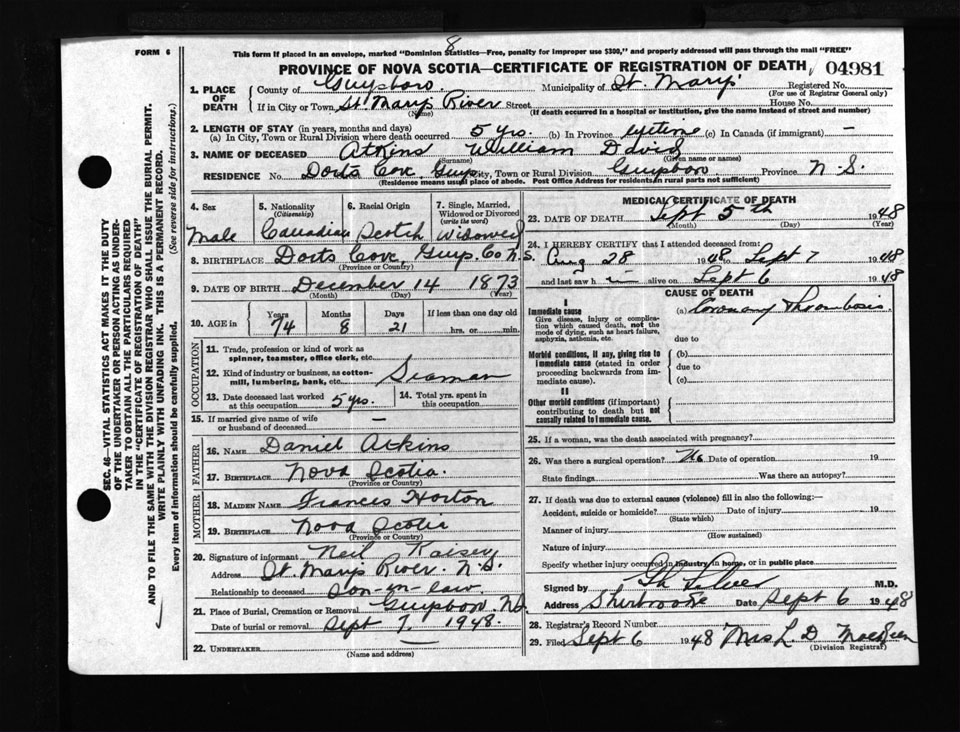 FORM 6
8
This form if placed in an envelope, marked "Dominion Statistics—Free, penalty for improper use $300," and properly addressed will pass through the mail "FREE"
PROVINCE OF NOVA SCOTIA—CERTIFICATE OF REGISTRATION OF DEATH
04981
SEC. 46—VITAL STATISTICS ACT MAKES IT THE DUTY
OF THE UNDERTAKER OR PERSON ACTING AS UNDER-
TAKER TO OBTAIN ALL THE PARTICULARS REQUIRED
IN THE "CERTIFICATE OF REGISTRATION OF DEATH"
AND TO FILE THE SAME WITH THE DIVISION REGISTRAR WHO SHALL ISSUE THE BURIAL PERMIT.
WRITE PLAINLY WITH UNFADING INK. THIS IS A PERMANENT RECORD.
Every item of information should be carefully supplied. (See reverse side for instructions.)
1. PLACE OF DEATH
County of Guysboro Municipality of St. Marys Registered No.
(For use of Registrar General only)
If in City or Town St Marys River Street House No.
(Name) (If death occurred in a hospital or institution, give the name instead of street and number)
2. LENGTH OF STAY (in years, months and days)
(a) In City, Town or Rural Division where death occurred 5 yrs. (b) In Province lifetime (c) In Canada (if immigrant) —
3. NAME OF DECEASED Atkins William David
(Surname) (Given name or names)
RESIDENCE No. Dorts Cove, Guys City, Town or Rural Division Guysboro Province N.S.
(Residence means usual place of abode. Post Office Address for residents in rural parts not sufficient)
4. Sex
Male
5. Nationality
(Citizenship)
Canadian
6. Racial Origin
Scotch
7. Single, Married, Widowed or Divorced
(write the word)
Widowed
8. BIRTHPLACE Dorts Cove, Guys. Co N.S.
(Province or Country)
9. DATE OF BIRTH December 14 1873
(Month) (Day) (Year)
10. AGE in Years Months Days If less than one day old
74 8 21 hrs. or min.
OCCUPATION
11. Trade, profession or kind of work as
spinner, teamster, office clerk, etc.
12. Kind of industry or business, as cotton-
mill, lumbering, bank, etc. Seaman
13. Date deceased last worked at this occupation 5 yrs. 14. Total yrs. spent in this occupation
15. If married give name of wife
or husband of deceased —
FATHER
16. NAME Daniel Atkins
17. BIRTHPLACE Nova Scotia
(Province or Country)
MOTHER
18. MAIDEN NAME Frances Horton
19. BIRTHPLACE Nova Scotia
(Province or Country)
20. Signature of informant Neil
Address St. Marys River. N.S.
Relationship to deceased Son-in-law
21. Place of Burial, Cremation or Removal Guysboro, N.S.
Date of burial or removal Sept 7, 1948.
22. UNDERTAKER —
(Name and address)
MEDICAL CERTIFICATE OF DEATH
23. DATE OF DEATH Sept 5th 1948
(Month) (Day) (Year)
24. I HEREBY CERTIFY that I attended deceased from:
Aug 28 1948 to Sept 7 1948
and last saw h im alive on Sept 6 1948
CAUSE OF DEATH
I
Immediate cause
Give disease, injury or complica-
tion which caused death, not the
mode of dying, such as heart failure,
asphyxia, asthenia, etc.
(a) Coronary Thrombosis
due to
Morbid conditions, if any, giving rise to
immediate cause (stated in order
proceeding backwards from im-
mediate cause).
(b)
due to
(c)
II
Other morbid conditions (if important)
contributing to death but not
causally related to immediate cause.
25. If a woman, was the death associated with pregnancy?
26. Was there a surgical operation? No Date of operation 19
State findings Was there an autopsy?
27. If death was due to external causes (violence) fill in also the following:—
Accident, suicide or homicide? Date of injury 19
(State which)
Manner of injury
(How sustained)
Nature of injury
Specify whether injury occurred in industry, in home, or in public place
Signed by M.D.
Address Sherbrooke Date Sept 6 1948
28. Registrar's Record Number
29. Filed Sept 6 1948 Mrs L. D
(Division Registrar)